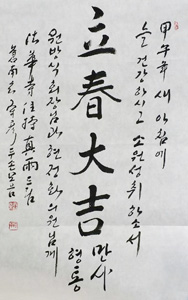 甲午年 새 아침에
늘 건강하시고 소원성취 하소서
立春大吉
만사
형통
원방식 회장님과 현정화 의원님께
法華寺 住持 真雨 三喆